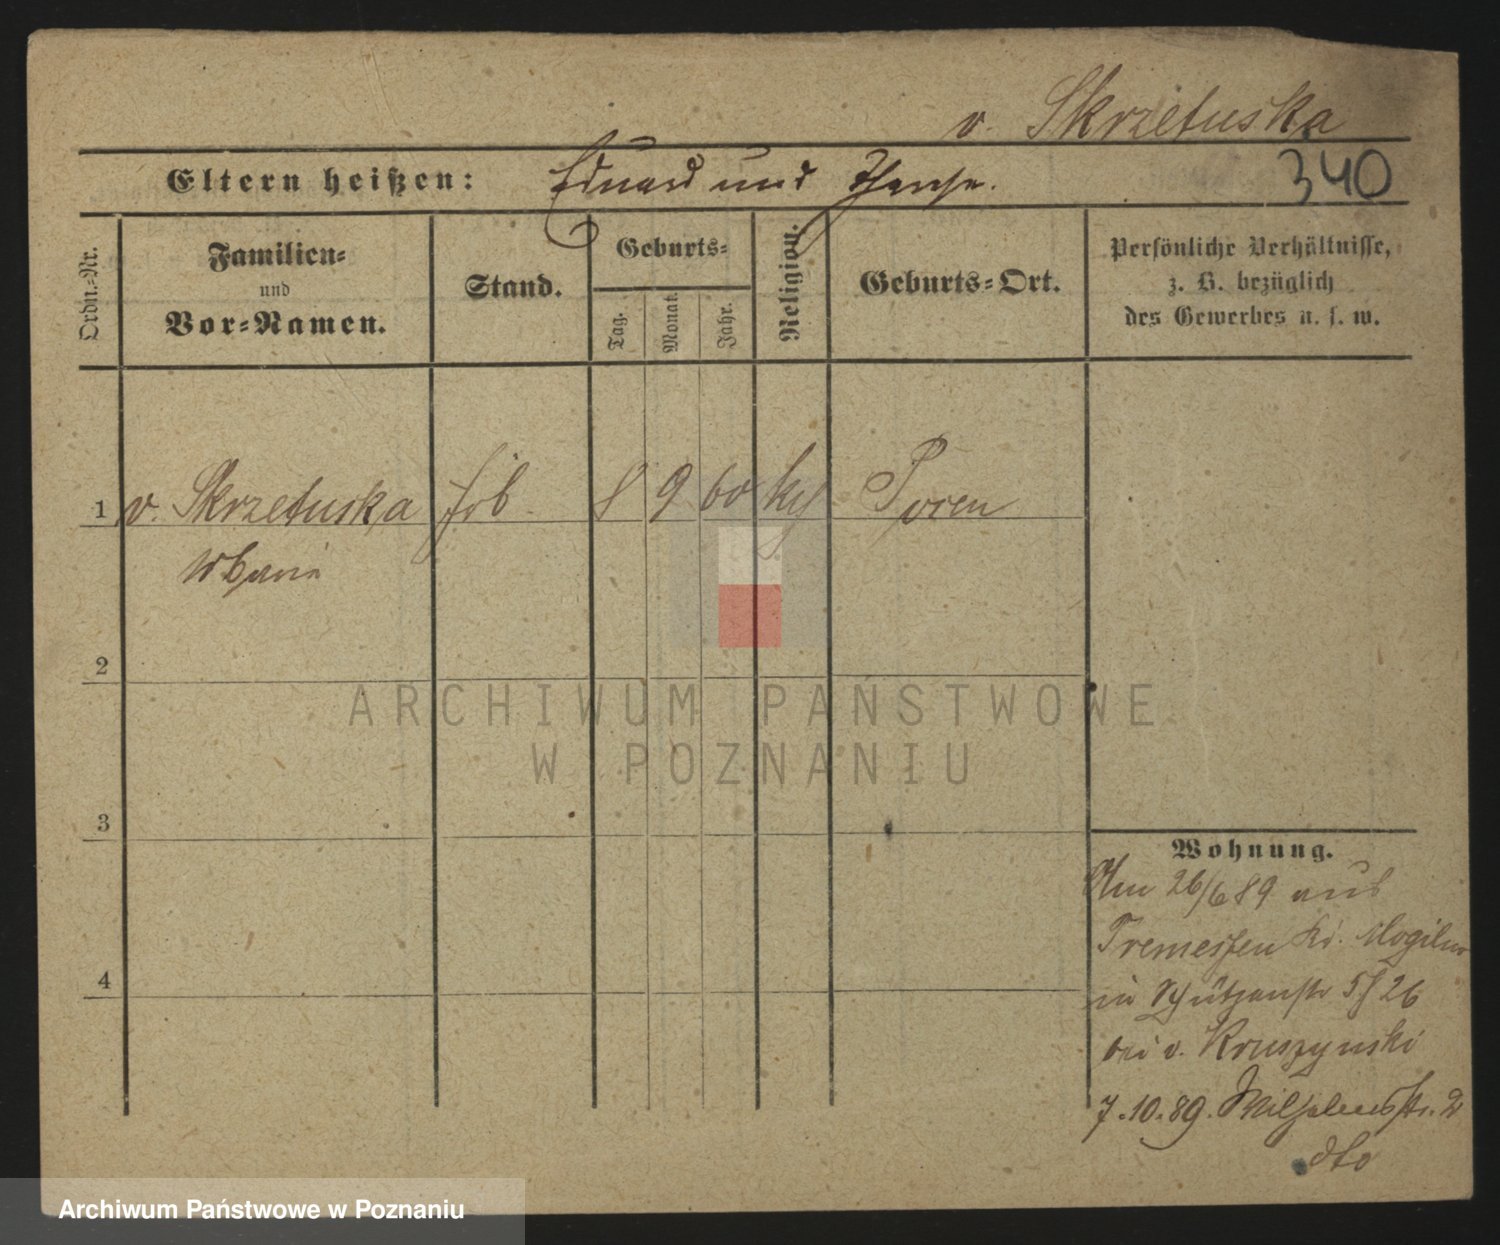 v. Skrzetuska
Eltern heißen: Eduard und
340
Ordn.-Nr.
Familien-
und
Vor-Namen.
Stand.
Geburts-
Tag.
Monat.
Jahr.
Religion.
Geburts-Ort.
Persönliche Verhältnisse,
z. B. bezüglich
des Gewerbes u. s. w.
1 v. Skrzetuska 8 9 60
2
3
4
Wohnung.
Am 26/6 89 aus
Tremessen Kr. Mogilno
in Schützenstr
bei v. Kruszynski
7.10.89. Wilhelmsstr. 2
dto
ARCHIWUM PAŃSTWOWE
W POZNANIU
Archiwum Państwowe w Poznaniu